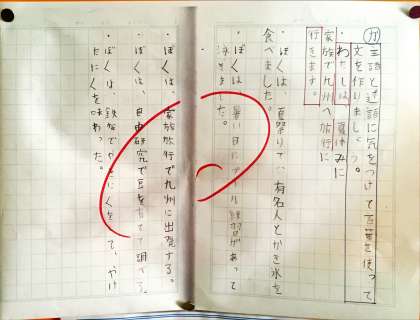 め 主語と述語に気をつけて言葉を使って
文を作りましょう。
・わたしは、夏休みに
家族で九州へ旅行に
行きます。
・ぼくは、夏祭りで、有名人とかき氷を
食べました。
・ぼくは、暑い日にプール練習があって
ました。
・ぼくは、家族旅行で九州に出発する。
・ぼくは、自由研究で豆を育てて調べた。
・ぼくは、鉄板でやきにくをして、やけ
たにくを味わった。